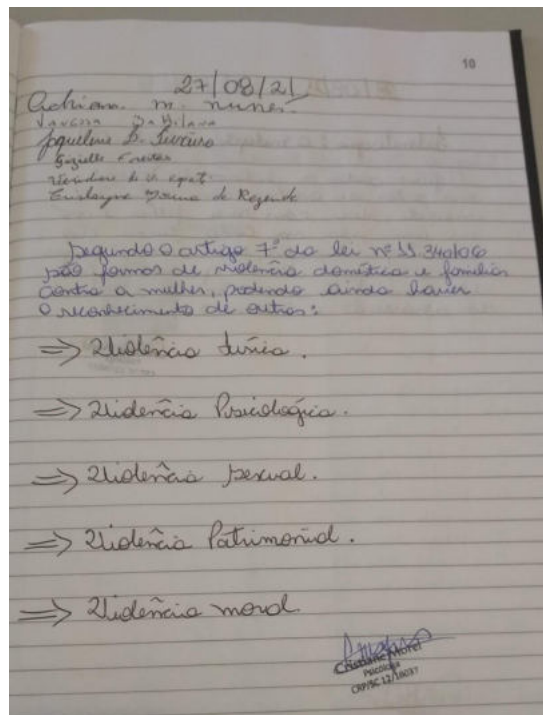 10
27/08/21
Adriana. m. nunes.
Vanessa
Jaqueline D.
Gizielle Freitas
Cristiayne de Rezende
Segundo o artigo 7º da lei nº 11.340/06
são formas de violência doméstica e familiar
contra a mulher, podendo ainda haver
o reconhecimento de outras:
=> Violência física.
=> Violência Psicológica.
=> Violência sexual.
=> Violência Patrimonial.
=> Violência moral.
Cristiane Morel
Psicóloga
CRP/SC 12/18037